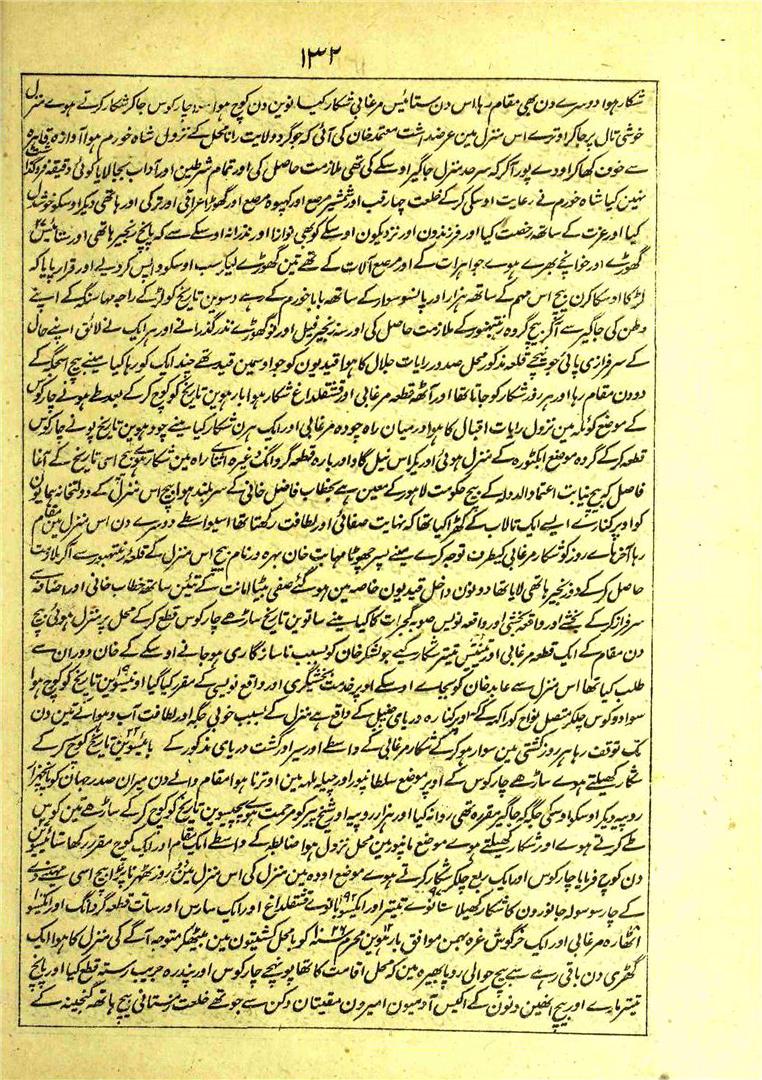 ۱۳۲
شکار ہوا دوسرے دن بھی مقام رہا اس دن ستائیس مرغابی شکار کیا نوین دن کوچ ہوا چار کوس جا کر شکار کرتے ہوے منزل
خوشی تال پر جا کر اوترے اس منزل مین عرضداشت معتمد خان کی آئی کہ جو گرد ولایت رانا محل کے نزول شاہ خورم ہوا آوازہ قاہرہ
سے خوف کھا کر اودے پور آ کر کہ سرحد منزل جاگیر اوسکے کی تھی ملازمت حاصل کی اور تمام شرطین اور آداب بجا لایا کوئی دقیقہ فروگذا
نہین کیا شاہ خورم نے رعایت اوسکی کر کے خلعت چارقب اور شمشیر مرصع اور کہپوہ مرصع اور گھوڑا عراقی اور ترکی اور ہاتھی دیکر اوسکو خوشدل
کیا اور عزت کے ساتھ رخصت کیا اور فرزندون اور نزدیکیون اوسکے کو بھی نوازا اور نذرانہ اوسکے سے کہ پانچ زنجیر ہاتھی اور ستائیس
گھوڑے اور خوانچے بھرے ہوے جواہرات کے اور مرصع آلات کے تھے تین گھوڑے لیکر سب اوسکو واپس کر دیے اور قرار پایا کہ
لڑکا اوسکا کرن بیچ اس مہم کے ساتھ ہزار اور پانسو سوار کے ساتھ بابا خورم کے رہے دسوین تاریخ کو لڑکے راجہ مہا سنگہ کے اپنے
وطن کی جاگیر سے آ کر بیچ گردہ رنتھنبور کے ملازمت حاصل کی اور سہ زنجیر فیل اور نو گھوڑے نذر گذرانے اور ہر ایک نے لائق اپنے حال
کے سرفرازی پائی جو نیچے قلعہ مذکور محل صدور رایات جلال کا ہوا قیدیون کو جو اوسمین قید تھے چند ایک کو رہا کیا مینے بیچ اسجگہ کے
دو دن مقام رہا اور ہر روز شکار کو جاتا تھا اور آٹھ قطعہ مرغابی اور قشقلداغ شکار ہوا بارہوین تاریخ کو کوچ کر کے بعد طے ہونے چار کوس
کے موضع کوئلہ مین نزول رایات اقبال کا ہوا درمیان راہ چودہ مرغابی اور ایک ہرن شکار کیا مینے چودہوین تاریخ پونے چار کوس
قطعہ کر کے گردہ موضع ایکٹورہ کے منزل ہوئی اور یک راس نیل گاو اور بارہ قطعہ گروانگ وغیرہ اثنای راہ مین شکار ہوے بیچ اسی تاریخ کے آغا
فاضل کہ بیچ نیابت اعتماد الدولہ کے بیچ حکومت لاہور کے معین ہے بخطاب فاضل خانی کے سربلند ہوا بیچ اس منزل کے دولتخانہ ہمایون
کو اوپر کنارے ایسے ایک تالاب کے کھڑا کیا تھا کہ نہایت صفائی اور لطافت رکھتا تھا اسیواسطے دوسرے دن اس منزل مین مقام
رہا آخرہاے روز کو شکار مرغابی کیطرف توجہ کرے مینے پسر چھوٹا مہابت خان بہرہ ور نام بیچ اس منزل کے قلعہ رنتہنبور سے آ کر ملازمت
حاصل کر کے دو زنجیر ہاتھی لایا تھا دونون داخل قیدیون خاصہ مین ہو گئے صفی بیٹا امانت کے تئین ساتھ خطاب خانی اور اضافہ سے
سرفراز کر کے بخشی اور واقعہ بخشی اور واقعہ نویس صوبہ گجرات کا کیا مینے ساتوین تاریخ ساڑھے چار کوس قطع کر کے محل پر منزل ہوئی بیچ
دن مقام کے ایک قطعہ مرغابی اور تینتیس تیتر شکار کیے جو لشکر خان کو بسبب ناسازگاری ہو جانے اوسکے کے خان دوران سے
طلب کیا تھا اس منزل سے عابد خان کو بجاے اوسکے اوپر خدمت بخشیگری اور واقع نویسی کے مقرر کیا گیا اونیسوین تاریخ کو کوچ ہوا
سوا دو کوس چلکر متصل نواح کوراکہ کے اوپر کنارہ دریای چنبل کے واقع ہے منزل کے بسبب خوبی جگہ اور لطافت آب و ہوا نے تین دن
تک توقف رہا ہر روز کشتی مین سوار ہو کر کے شکار مرغابی کے واسطے اور سیر اور گشت دریای مذکور کے بائیسوین تاریخ کوچ کر کے
شکار کھیلتے ہوے ساڑھے چار کوس کے اوپر موضع سلطانپور اور چیلہ ملہ مین اوترنا ہوا مقام والے دن میران صدر جہان کو پانچہزار
روپیہ دیکر اوسکو اوسکی جگہ کہ جاگیر مقررہ تھی روانہ کیا اور ہزار روپیہ اور شیخ پیر کو مرحمت ہوے پچیسوین تاریخ کو کوچ کر کے ساڑھے تین کوس
طے کرتے ہوے اور شکار کھیلتے ہوے موضع مانپور مین محل نزول ہوا ضابطہ کے واسطے ایک مقام اور ایک کوچ مقرر رکھا ستائیسوین
دن کوچ فرمایا چار کوس اور ایک ربع چلکر شکار کرتے ہوے موضع اودہ مین منزل کی اس منزل مین دو روز ٹھہرنا پڑا بیچ اسی مہینے
کے چار سو سولہ جانورون کا شکار کھیلا ستانوے تیتر اور ایکسو بانوے قشقلداغ اور ایک سارس اور سات قطعہ گروانگ اور ایکسو
اٹھارہ مرغابی اور ایک خرگوش غرہ بہمن موافق بارہوین محرم ۱۰۲۶ سنہ کو با محل کشتیون مین بیٹھکر متوجہ آگے کی منزل کا ہوا ایک
گھڑی دن باقی رہے سے بیچ حوالی روپاہیرہ مین کہ محل اقامت کا تھا پونہچے چار کوس اور پندرہ جریب رستہ قطع کیا اور پانچ
تیتر مارے اور بیچ انھین دنون کے اکیس آدمیون امیرون متعینان دکن سے جو تھے خلعت زمستانی بیچ ہاتھ گنجینہ کے